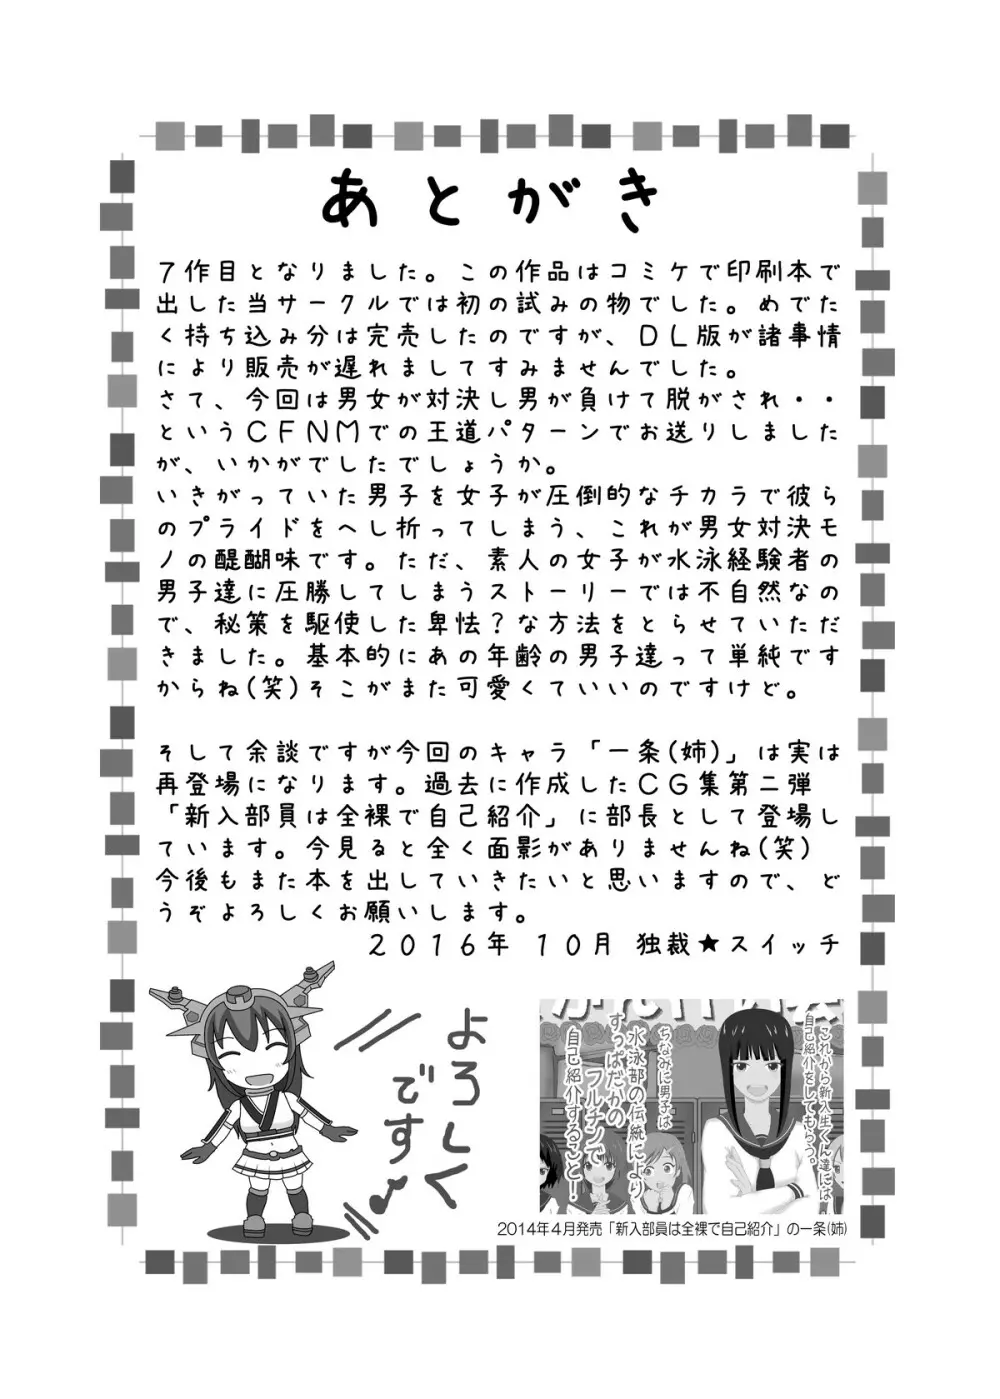 あとがき
7作目となりました。この作品はコミケで印刷本で
出した当サークルでは初の試みの物でした。めでた
く持ち込み分は完売したのですが、DL版が諸事情
により販売が遅れましてすみませんでした。
さて、今回は男女が対決し男が負けて脱がされ・・
というCFNMでの王道パターンでお送りしました
が、いかがでしたでしょうか。
いきがっていた男子を女子が圧倒的なチカラで彼ら
のプライドをへし折ってしまう、これが男女対決モ
ノの醍醐味です。ただ、素人の女子が水泳経験者の
男子達に圧勝してしまうストーリーでは不自然なの
で、秘策を駆使した卑怯？な方法をとらせていただ
きました。基本的にあの年齢の男子達って単純です
からね(笑)そこがまた可愛くていいのですけど。
そして余談ですが今回のキャラ「一条(姉)」は実は
再登場になります。過去に作成したCG集第二弾
「新入部員は全裸で自己紹介」に部長として登場し
ています。今見ると全く面影がありませんね(笑)
今後もまた本を出していきたいと思いますので、ど
うぞよろしくお願いします。
2016年 10月 独裁★スイッチ
よろしく
です
これから新入生くん達には
自己紹介をしてもらう。
ちなみに男子は
水泳部の伝統により
すっぱだかの
フルチンで
自己紹介すること！
2014年4月発売「新入部員は全裸で自己紹介」の一条(姉)